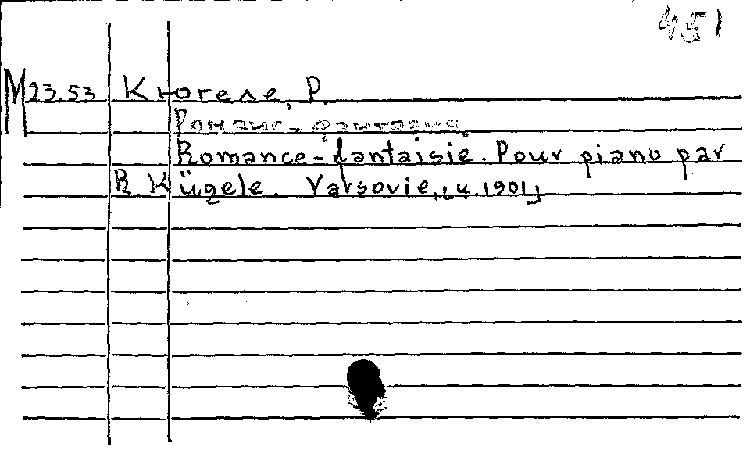 451
M 23.53 Кюгеле, Р.
Романс-фантазия.
Romance-fantaisie. Pour piano par
R. Kügele. Varsovie, [ц. 1901]